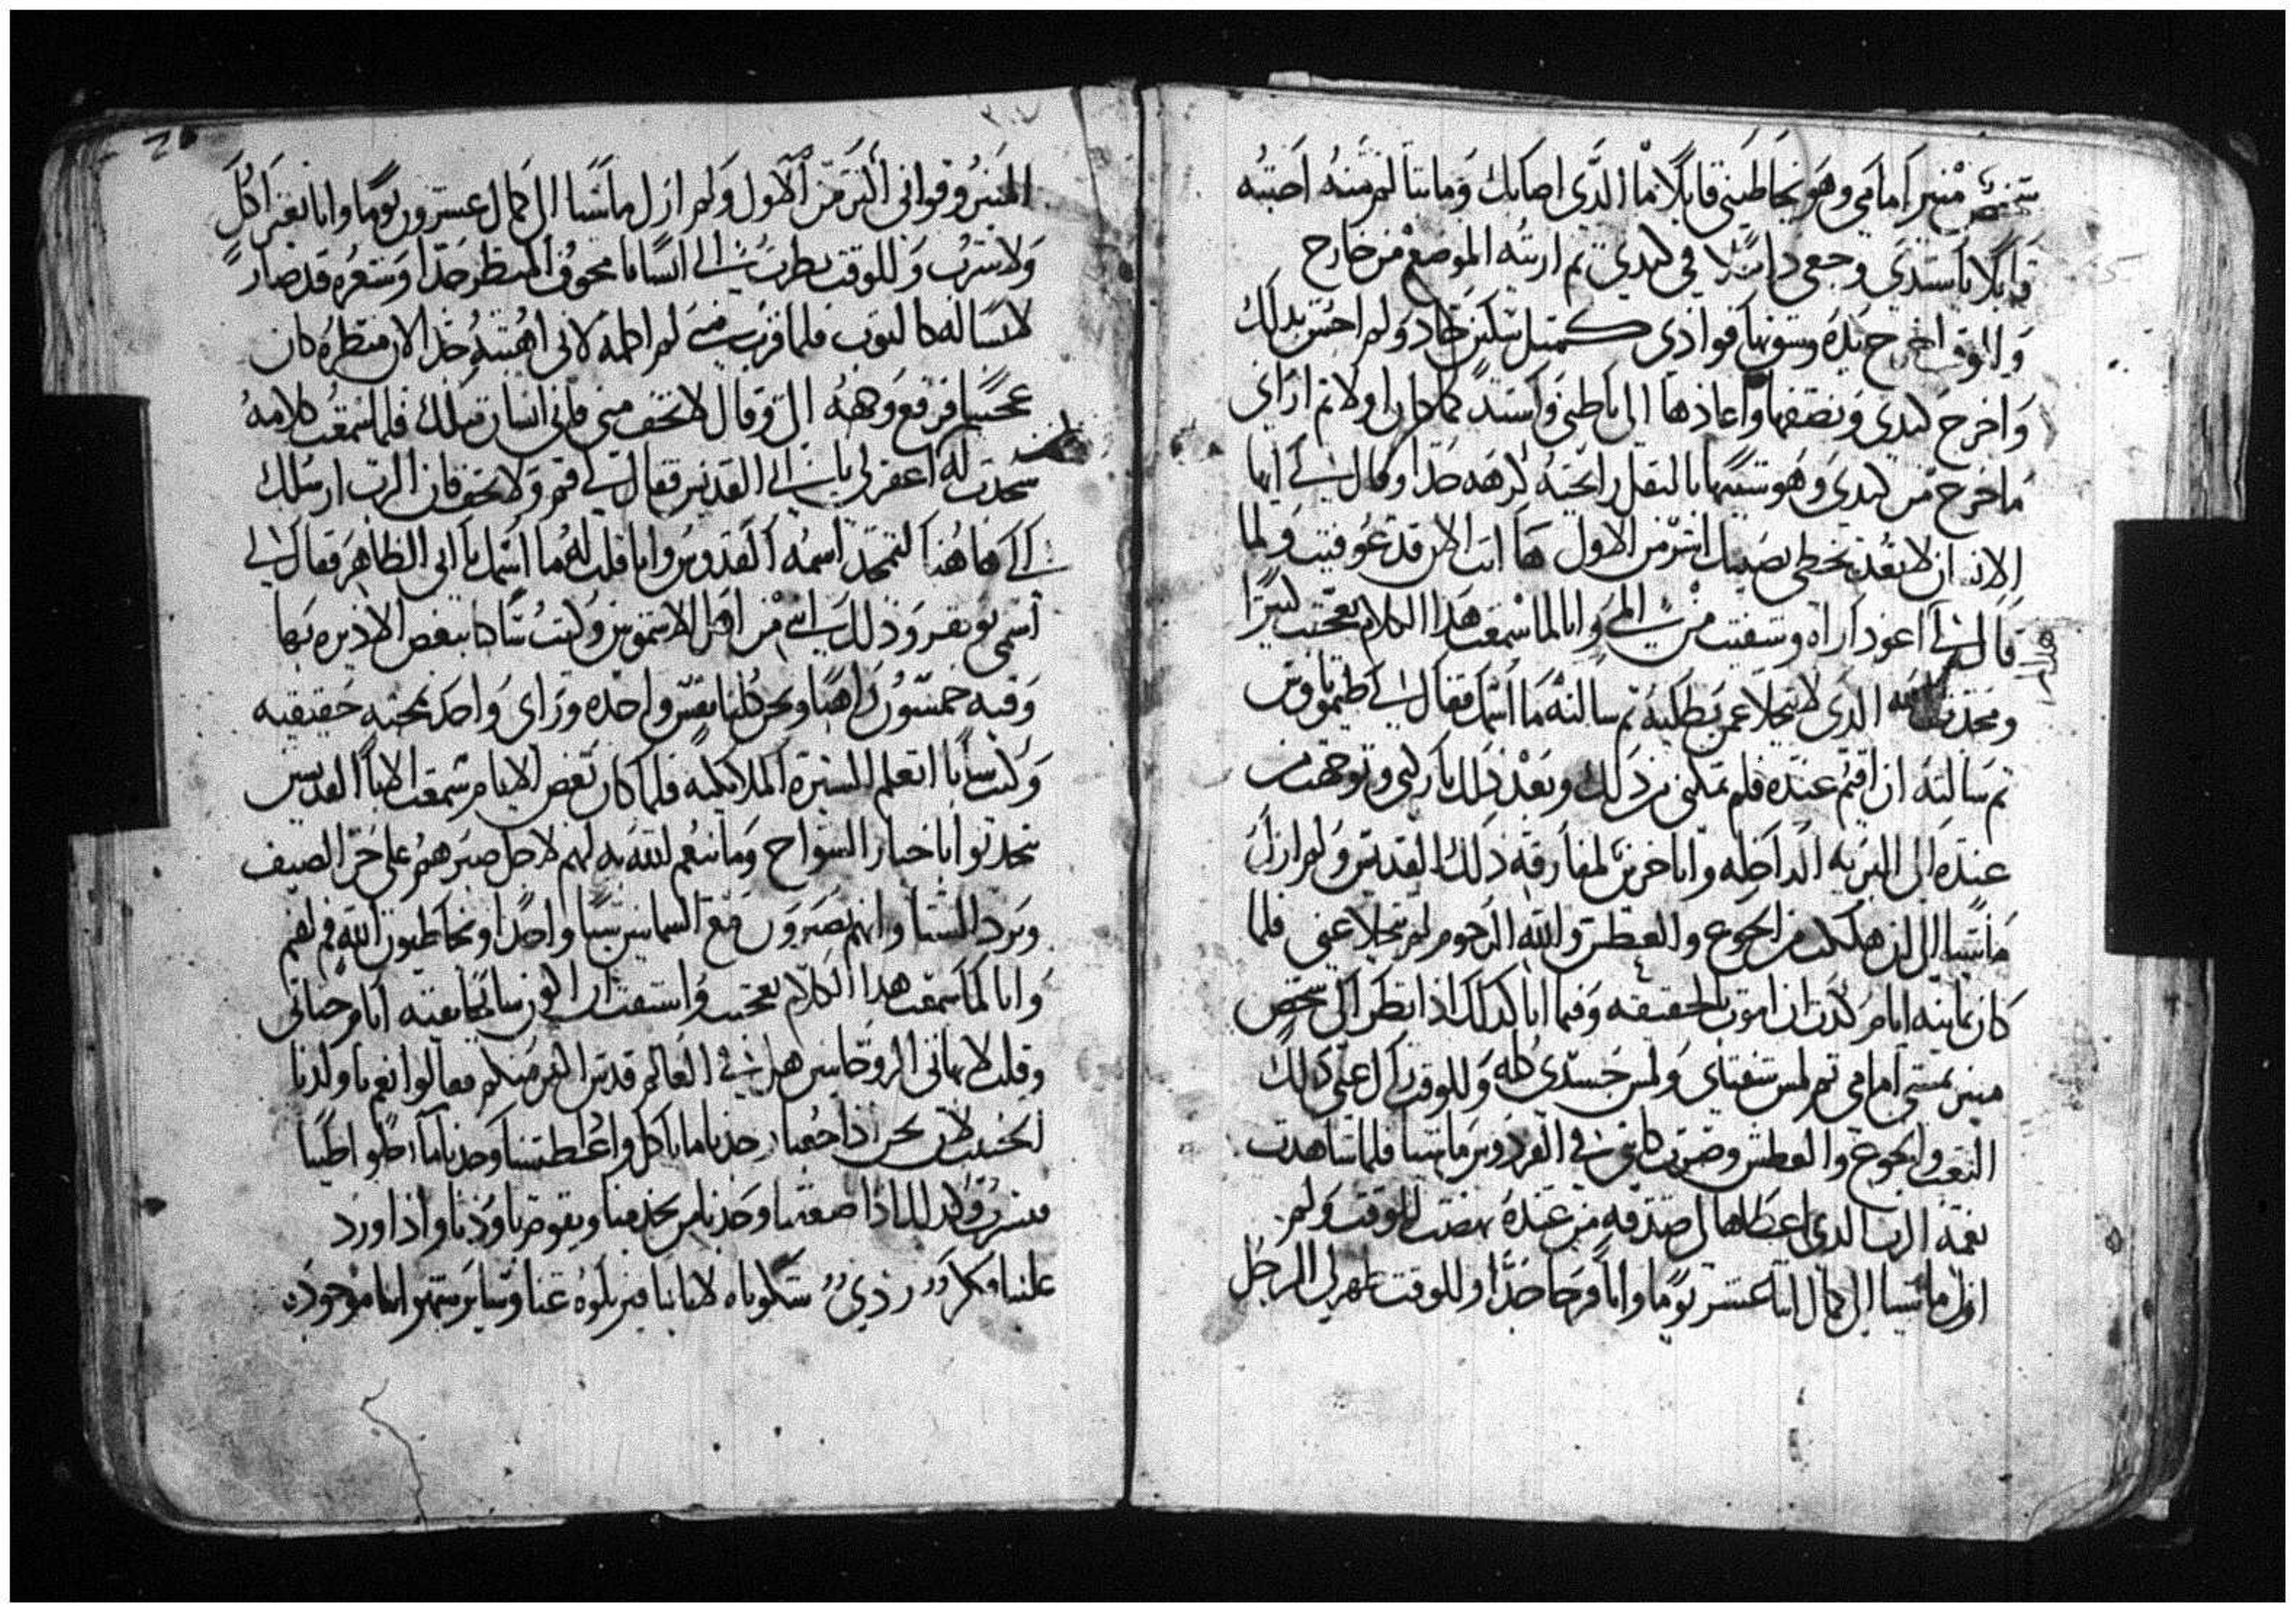 شخص منير أمامي وهو يخاطبني قايلا ما الذي اصابك وما تتالم منه اجبته
قايلا يا سيدي وجعي داخلا في كبدي ثم اريته الموضع من خارج
وللوقت اخرج يده وشق بها فوادي كمثل سكين حاد ولم احس بذلك
واخرج كبدي ونضفها واعادها الى باطني واستد كما كان اولا ثم اراني
ما اخرج من كبدي وهو شبيها بالتفل رايحته كرهه جدا وقال لي ايها
الانسان لا تعد تخطي يصيبك اشر من الاول ها انت الان قد عوفيت ولما
قال لي اعود اراه وشفيت من المي وانا لما سمعت هذا الكلام تعجبت كثيرا
ومجدت الله الذي لا يتخلا عمن يطلبه ثم سالته ما اسمك فقال لي طيموتاوس
ثم سالته ان اقيم عنده فلم يمكني من ذلك وبعد ذلك باركني وتوجهت من
عنده الى البريه الداخله وانا حزين لمفارقة ذلك القديس ولم ازل
ماشيا الى ان هلكت من الجوع والعطش والله الرحوم لم يتخلا عني فلما
كان ثمانيه ايام كدت ان اموت بالحقيقه وفيما انا كذلك اذ انظر الى شخص
منير يمشي امامي ثم لمس شفتاي ولمس جسدي كله وللوقت زال عني ذلك
التعب والجوع والعطش وصرت كانني في الفردوس ماشيا فلما شاهدت
نعمة الرب الذي اعطاها لي صدقه من عنده نهضت للوقت ولم
ازل ماشيا الى كمال اثنا عشر يوما وانا فرحا جدا وللوقت ظهر لي الرجل
المنير وقواني اكثر من الاول ولم ازل ماشيا الى كمال عشرون يوما وانا بغير اكل
ولا شرب وللوقت نظرت الى انسانا مخوف المنظر جدا وشعره قد صار
لباسا له كالثوب فلما قرب مني لم اكلمه لاني اهبته جدا لان منظره كان
عجيبا فرفع وجهه الي وقال لا تخف مني فاني انسان مثلك فلما سمعت كلامه
سجدت له اغفر لي يا ابي القديس فقال لي قم ولا تخف فان الرب ارسلك
الي هاهنا لتمجد اسمه القدوس وانا قلت له ما اسمك يا ابي الطاهر فقال لي
اسمي نوفر وذلك انني من اهل الاشمونين وكنت ساكنا ببعض الاديره بها
وفيه خمسون راهبا ونحن كلنا بنفس واحده وراي واحد بمحبه حقيقيه
وكنت شابا اتعلم السيرة الملايكيه فلما كان بعض الايام سمعت الابا القديسين
يتحدثوا باخبار السواح وما ينعم الله به لهم لاجل صبرهم على حر الصيف
وبرد الشتا وانهم يصيرون مع السمايين شيا واحدا ويخاطبون الله فم لفم
وانا لما سمعت هذا الكلام تعجبت
وقلت لابهاتي الروحانيين هل في العالم قديس اكثر منكم فقالوا نعم يا ولدنا
الحبيب لان نحن اذا جعنا وجدنا ما ناكل واذا عطشنا وجدنا ماء حلو اطيبا
فنشرب وكذلك اذا ضعفنا وجدنا من يخدمنا ويقوم باودنا واذا ورد
علينا فكر ردي شكوناه لابائنا فيزيلوه عنا